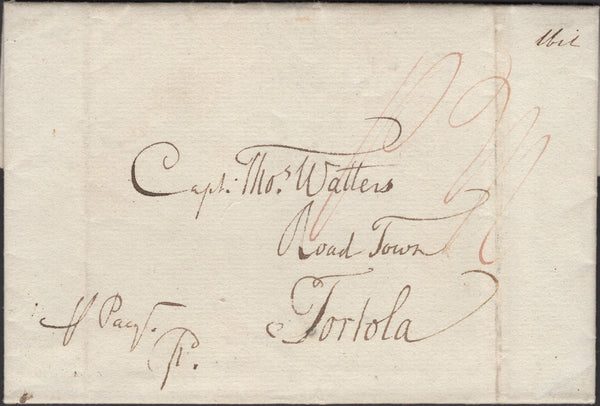 Capt: Thos. Watters
Road Town
Tortola
Pacqt.